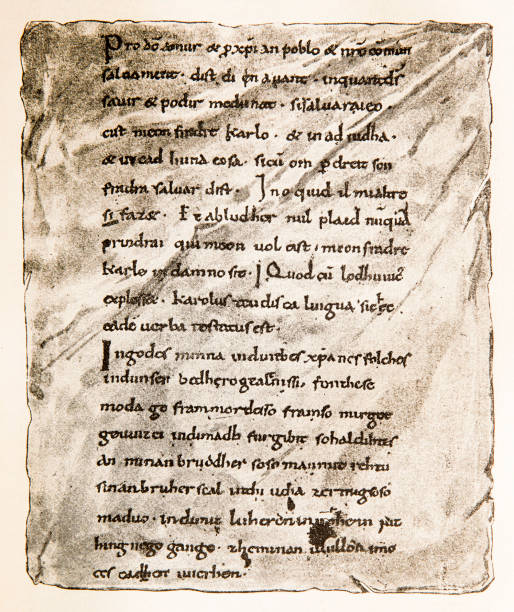 Pro dō amur & p xpi an poblo & nrō cōmun
saluament. dist di en auant. inquantdš
sauir & podir medunat. sisaluaraieo
cist meon fradre Karlo. & in ad iudha.
& in cad huna cosa. sicū om p dreit son
fradra saluar dist. Ino quid il mialtre
si faz&. Et abludher nul plaid nūquā
prindrai qui meon uol cist. meon fradre
Karle in damno sit. Quod cū lodhuuic
explesset. Karolus teudisca lingua sic hec
eadē uerba testatus est.
In godes minna induithes xpanes folches
indunser bedhero gealtnissi. fonthese
moda ge frammordesso framso mirgot
geuuizci indimadh furgibit sohaldihtes
an minan bruodher soso manmit rehtu
sinan bruher scal inthi utha zermigsoso
maduo. indimit luheren iut
hing nego gango. zheminan uuillon imo
ces cadhen uuerhen.